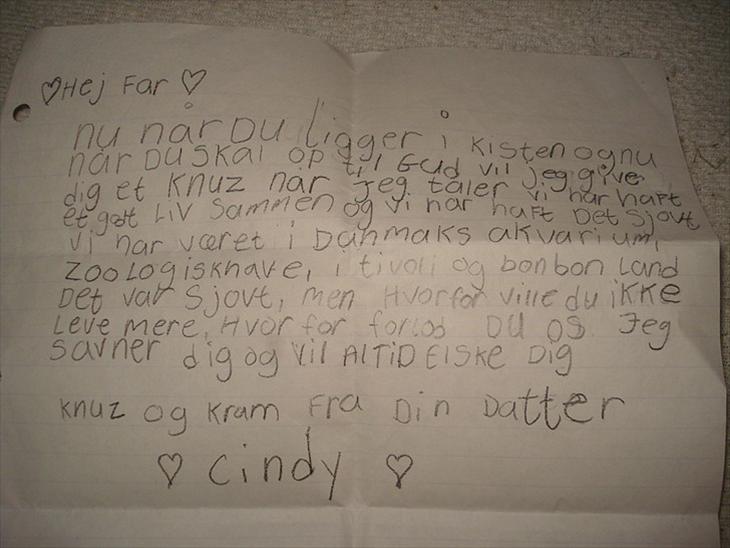 ♡Hej Far ♡
nu når DU ligger i kisten og nu
når DU SKAl op til Gud vil jeg give
dig et KNUZ når jeg taler vi har haft
et godt LiV Sammen og vi har haft Det Sjovt
Vi har været i Danmaks akvarium,
ZOOLOgiskhave, i tivoli og bonbon Land
Det var Sjovt, men Hvorfor ville du iKKe
Leve mere, Hvorfor forlod DU OS Jeg
Savner dig og Vil AlTiD ElSKe Dig
KNUZ og Kram Fra Din Datter
♡ Cindy ♡